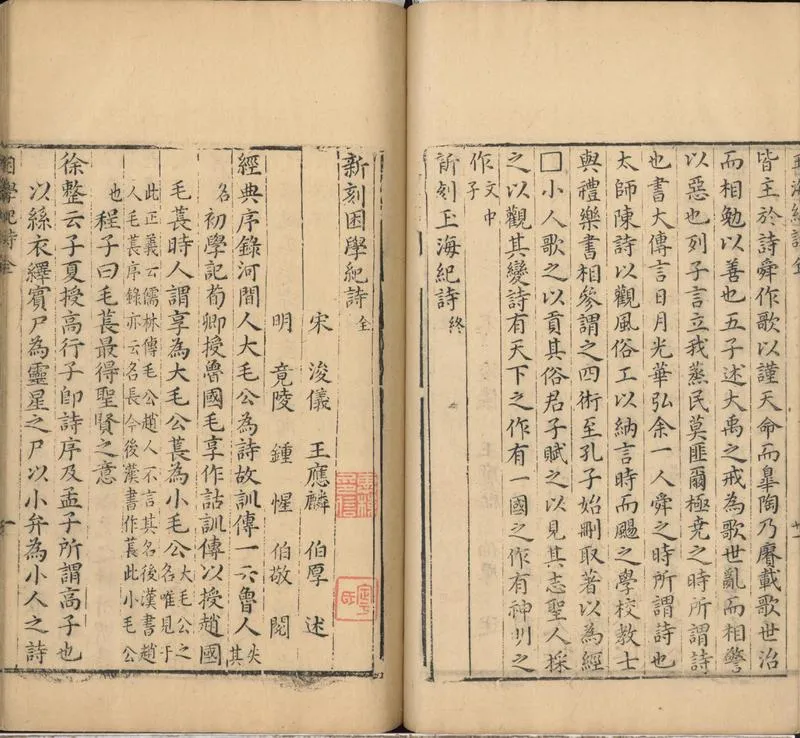 皆主於詩舜作歌以謹天命而皐陶乃賡載歌世治
而相勉以善也五子述大禹之戒為歌世亂而相警
以惡也列子言立我蒸民莫匪爾極堯之時所謂詩
也書大傳言日月光華弘余一人舜之時所謂詩也
太師陳詩以觀風俗工以納言時而颺之學校教士
與禮樂書相參謂之四術至孔子始刪取著以為經
□小人歌之以貢其俗君子賦之以見其志聖人採
之以觀其變詩有天下之作有一國之作有神州之
作文中子
新刻玉海紀詩終
新刻困學紀詩全
宋 浚儀 王應麟 伯厚 述
明 竟陵 鍾惺 伯敬 閱
經典序錄河間人大毛公為詩故訓傳一云魯人失其
名初學記荀卿授魯國毛亨作詁訓傳以授趙國
毛萇時人謂享為大毛公萇為小毛公大毛公之名唯見于
此正義云儒林傳毛公趙人不言其名後漢書趙
人毛萇序錄亦云名長今後漢書作萇此小毛公
也程子曰毛萇最得聖賢之意
徐整云子夏授高行子即詩序及孟子所謂高子也
以絲衣繹賓尸為靈星之尸以小弁為小人之詩
困學紀詩全
一